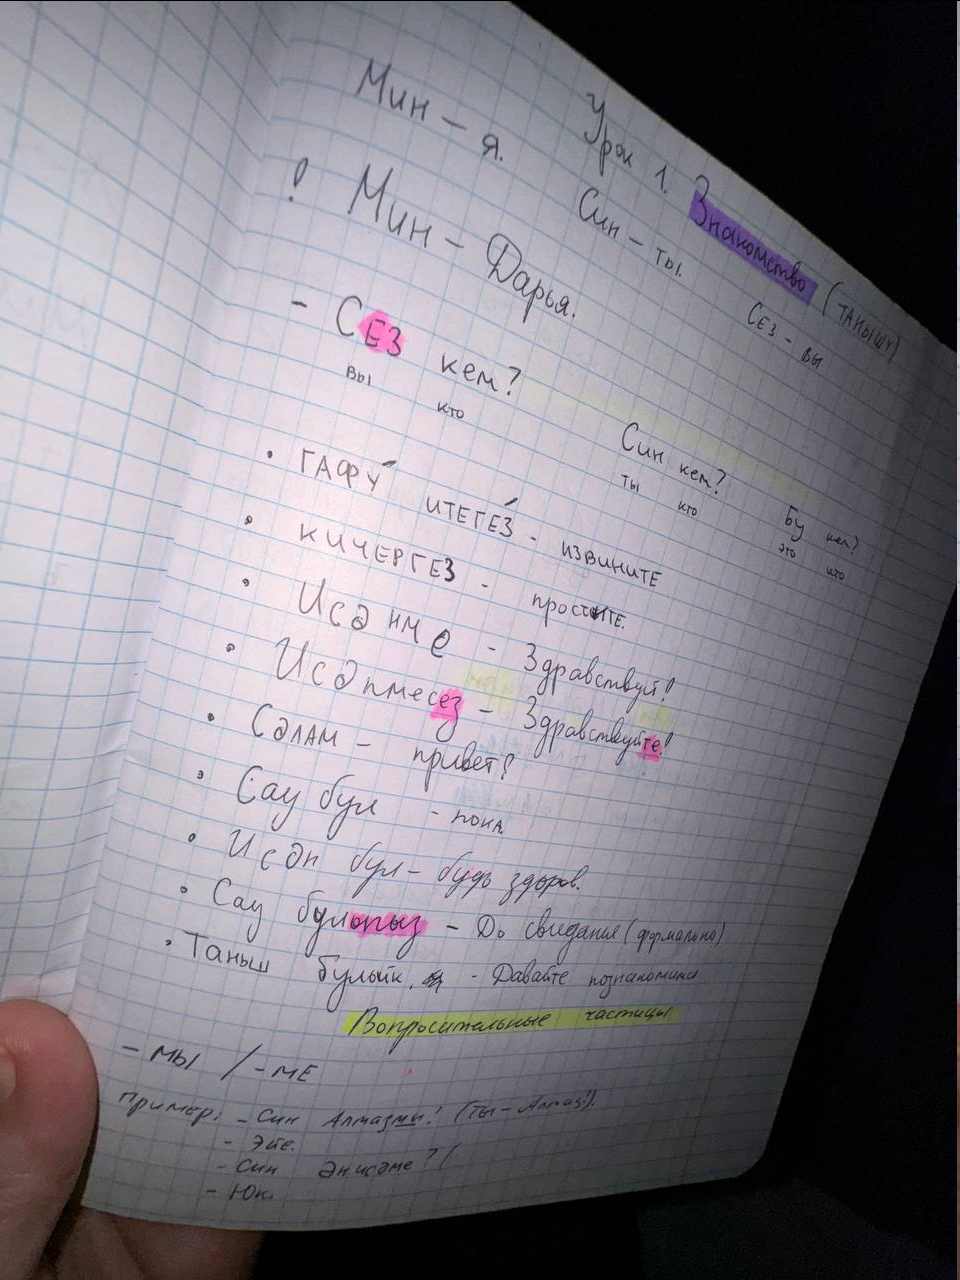 Урок 1. Знакомство (ТАНЫШУ)
Мин – я. Син – ты. Сез – вы
! Мин – Дарья.
- СЕЗ кем? Син кем? Бу кем?
вы кто ты кто это кто
• ГАФУ́ ИТЕГЕ́З - ИЗВИНИТЕ
• КИЧЕРГЕЗ - простите.
• Исәнме - Здравствуй!
• Исәнмесез - Здравствуйте!
• Сәлам - привет!
• Сау бул - пока.
• Исән бул - будь здоров.
• Сау булыгыз - До свидания (формально)
• Таныш булыйк. - Давайте познакомимся
Вопросительные частицы
- МЫ / - МЕ
Пример: - Син Алмазмы? (Ты - Алмаз?).
- Әйе.
- Син Әнисәме? (
- Юк.